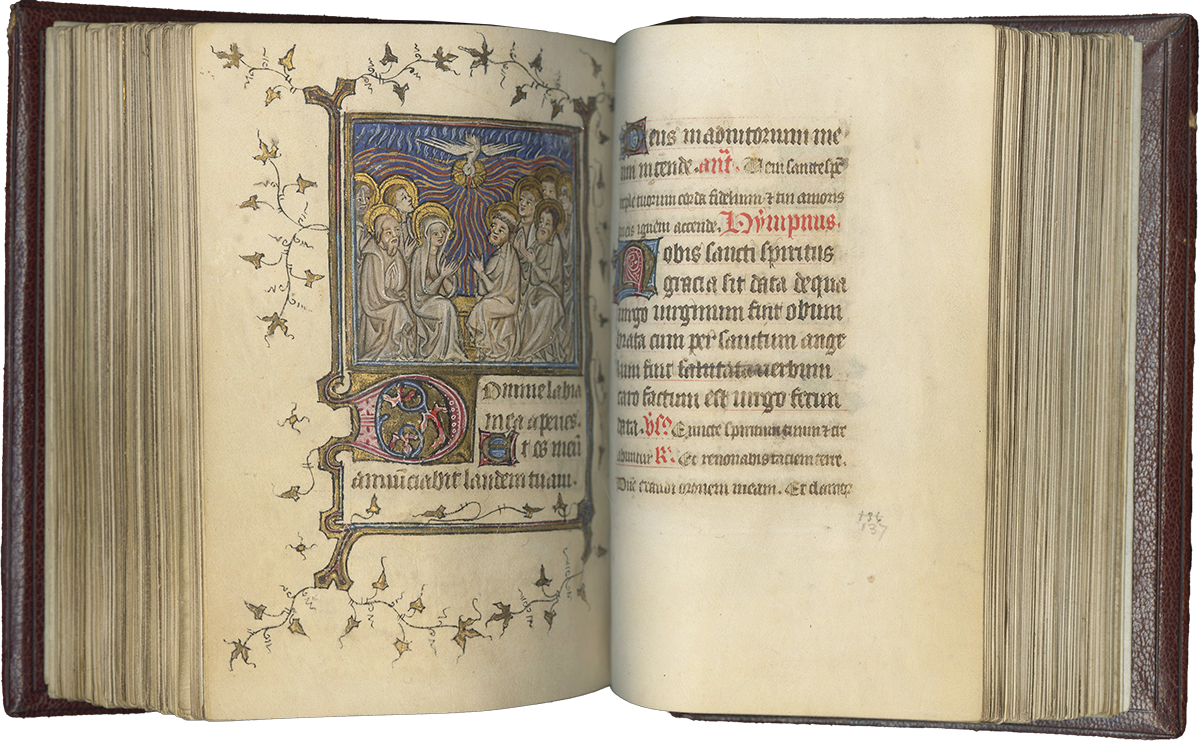 Domine labia
mea aperies.
Et os meū
annūciabit laudem tuam.
Deus in adiutorium me
um intende. añt. Veni sancte spc̄
reple tuorum corda fidelium ⁊ tui amoris
in eis ignem accende. Hympnus.
Nobis sancti spiritus
gracia sit data de qua
uirgo uirginum fuit obum
brata cum per sanctum ange
lum fuit salutata uerbum
caro factum est uirgo fecun
data. v̄s. Emitte spiritum tuum ⁊ cre
abuntur R. Et renouabis faciem terre.
Dn̄e exaudi oronem meam. Et clamor
136
137